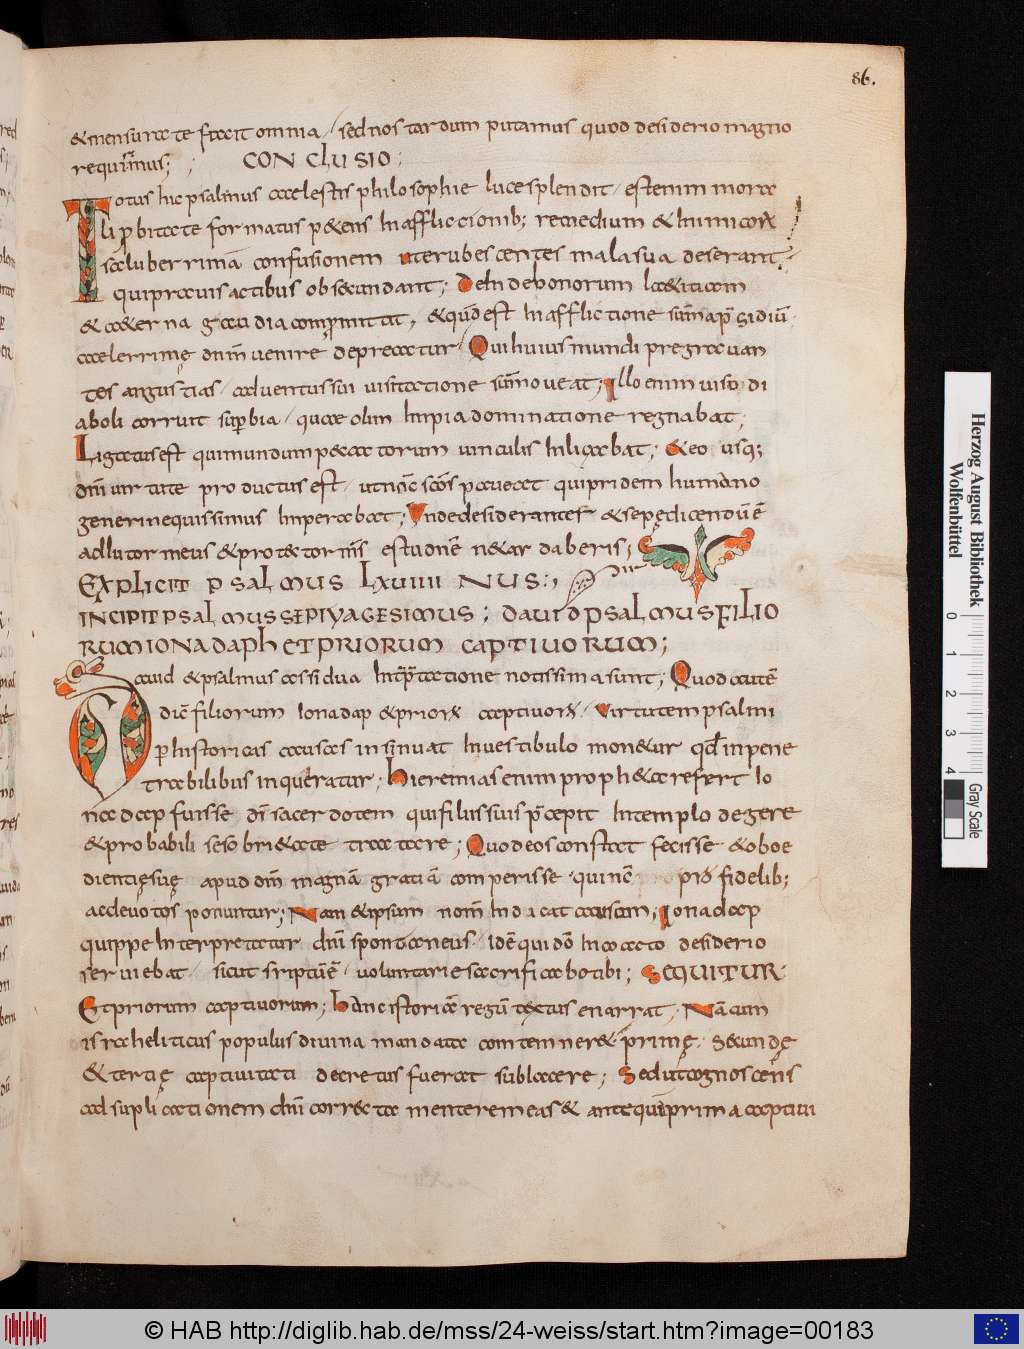 86.
& mensurate facit omnia / sed nos tardum putamus quod desiderio magno
requirimus; ; CONCLUSIO;
Totus hic psalmus caelestis philosophie luce splendit / est enim mora
li p bitate formatus p&ens In afflictionib; remedium & Inimicorum
saluberrimā confusionem ut erubescentes mala sua deserant
qui pravis actibus obsecundant; De Inde bonorum l&itiam
& &erna gaudia compmittit, & qm̄ est In afflictione summū apud dm̄ psidiū
celerrime dnm̄ venire deprecatur / Qui huius mundi pregravan
tes angustias / adventus sui visitatione summoveat; Illo enim viso di
aboli corruit suꝑbia / quae olim Impia dominatione regnabat;
Ligatus est qui mundum peccatorum vinculis Inligabat; & eo usq;
dm̄ virtute productus est / ut nc̄ scōs paveat qui pridem humano
generi nequissimus Imperabat; Unde desiderantes & sepe dicendū ē
adIutor meus & protector m̄s es tu dnē ne tardaberis;
EXPLICIT PSALMUS LXVIIII NUS:
INCIPIT PSALMUS SEPTUAGESIMUS; DAVID PSALMUS FILIO
RUM IONADAPH ET PRIORUM CAPTIVORUM;
David & psalmus assidua Interp̄tatione notissima sunt; Quod autē
dic̄ filiorum Ionadap & priorum captivorum / Virtutem psalmi
p historicas causas insinuat In vestibulo mon&ur qd̄ in pene
trabilibus inqueratur; Hieremias enim proph&a refert Io
nadap fuisse dī sacerdotem qui filiis suis p̄cepit In templo degere
& probabili se sobri&ate tractare; Quod eos constat fecisse & oboe
dientie sue apud dm̄ magnā gratiā comperisse qui nc̄ pro fidelib;
ac devotos ponuntur; Nam & ipsum nom̄ Indicat causam; Ionadap
quippe Interpretatur dnī spontaneus / idē qui dō Inoacto desiderio
serviebat / sicut scriptū ē / voluntarie sacrificabo tibi; SEQUITUR
Et priorum captivorum; Hanc istoriā regū textus enarrat; Nā cum
israheliticus populus divina mandata contemner& prime secunde
& tertie captivitati decretus fuerat subIacere; Sed ut cognoscens
ad supplicationem dnī correcta mente remeas& ante qui prima captivi
Herzog August Bibliothek
Wolfenbüttel
0 1 2 3 4
Gray Scale
© HAB http://diglib.hab.de/mss/24-weiss/start.htm?image=00183